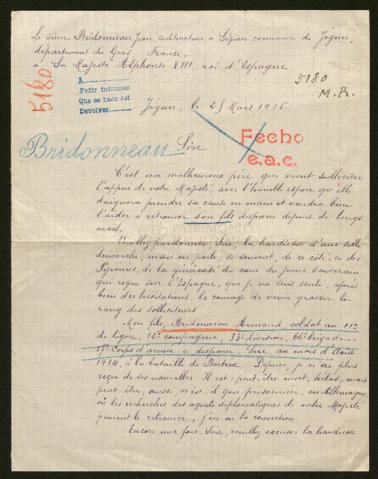 Le sieur Bridonneau Jean, cultivateur à Lézian commune de Jegun,
département du Gers France,
à Sa Majesté Alphonse XIII, roi d'Espagne
5180
5180
M. R.
A
Pedir informes
Que se hace así
Devolver
Jégun, le 25 Mars 1916
Bridonneau
Sire
Fecho
e.a.c.
C'est un malheureux père qui vient solliciter
l'appui de votre Majesté, avec l'humble espoir qu'elle
daignera prendre sa cause en main et voudra bien
l'aider à retrouver son fils disparu depuis de longs
mois.
Veuillez pardonner, Sire, la hardiesse d'une telle
démarche; mais on parle, si souvent, de ce côté-ci des
Pyrénées, de la générosité du cœur du jeune souverain
qui règne sur l'Espagne, que je me suis senti, après
bien des hésitations, le courage de venir grossir le
rang des solliciteurs
Mon fils, Bridonneau Armand, soldat au 11e
de ligne, 16e compagnie, 33e division, 66e brigade
17e Corps d'armée a disparu, Sire, au mois d'Août
1914, à la bataille de Bertrix. Depuis, je n'ai plus
reçu de ses nouvelles. Il est peut-être mort, hélas, mais
peut-être, aussi, n'est-il que prisonnier, en Allemagne,
où les recherches des agents diplomatiques de votre Majesté
peuvent le retrouver, j'en ai la conviction.
Encore une fois, Sire, veuillez excuser la hardiesse